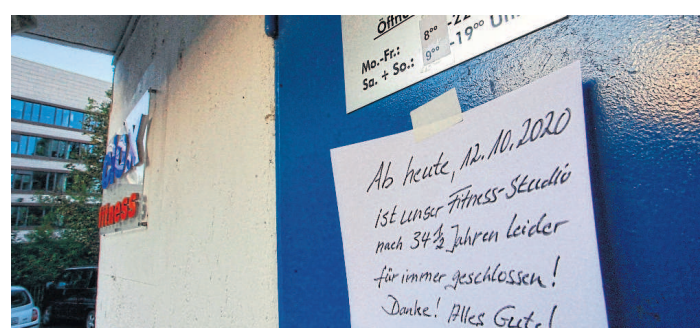 Öffn
Mo.-Fr.: 8⁰⁰ -22
Sa. + So.: 9⁰⁰ -19⁰⁰ Uh
fitness
Ab heute, 12.10.2020
ist unser Fitness-Studio
nach 34 1/2 Jahren leider
für immer geschlossen!
Danke! Alles Gute!